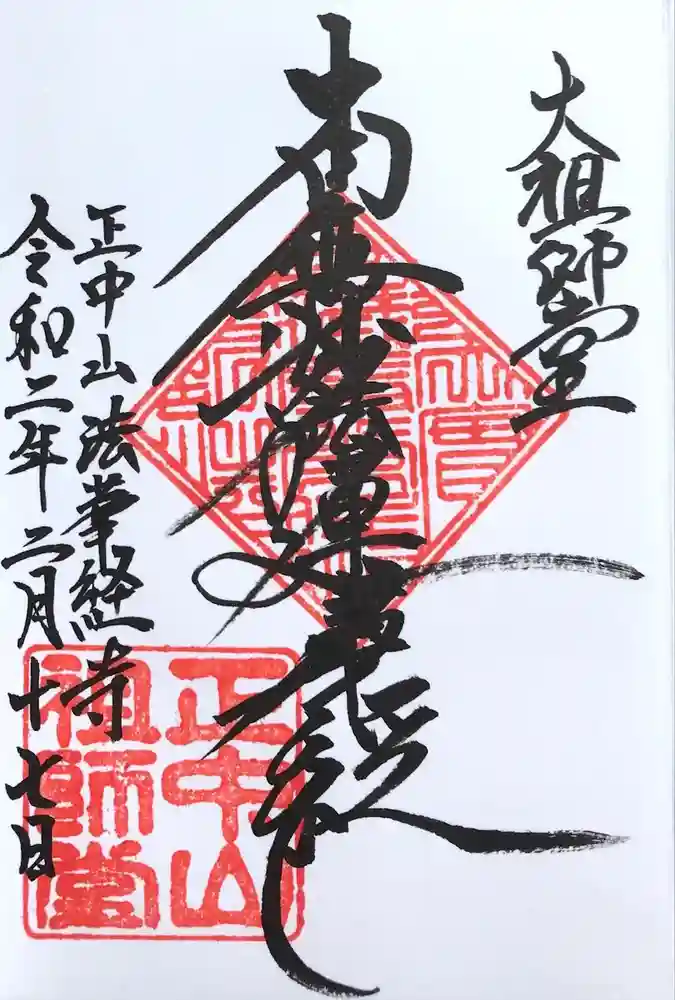 大祖師堂
南無妙法蓮華経
正中山法華経寺
令和二年二月十七日
正中山
祖師堂